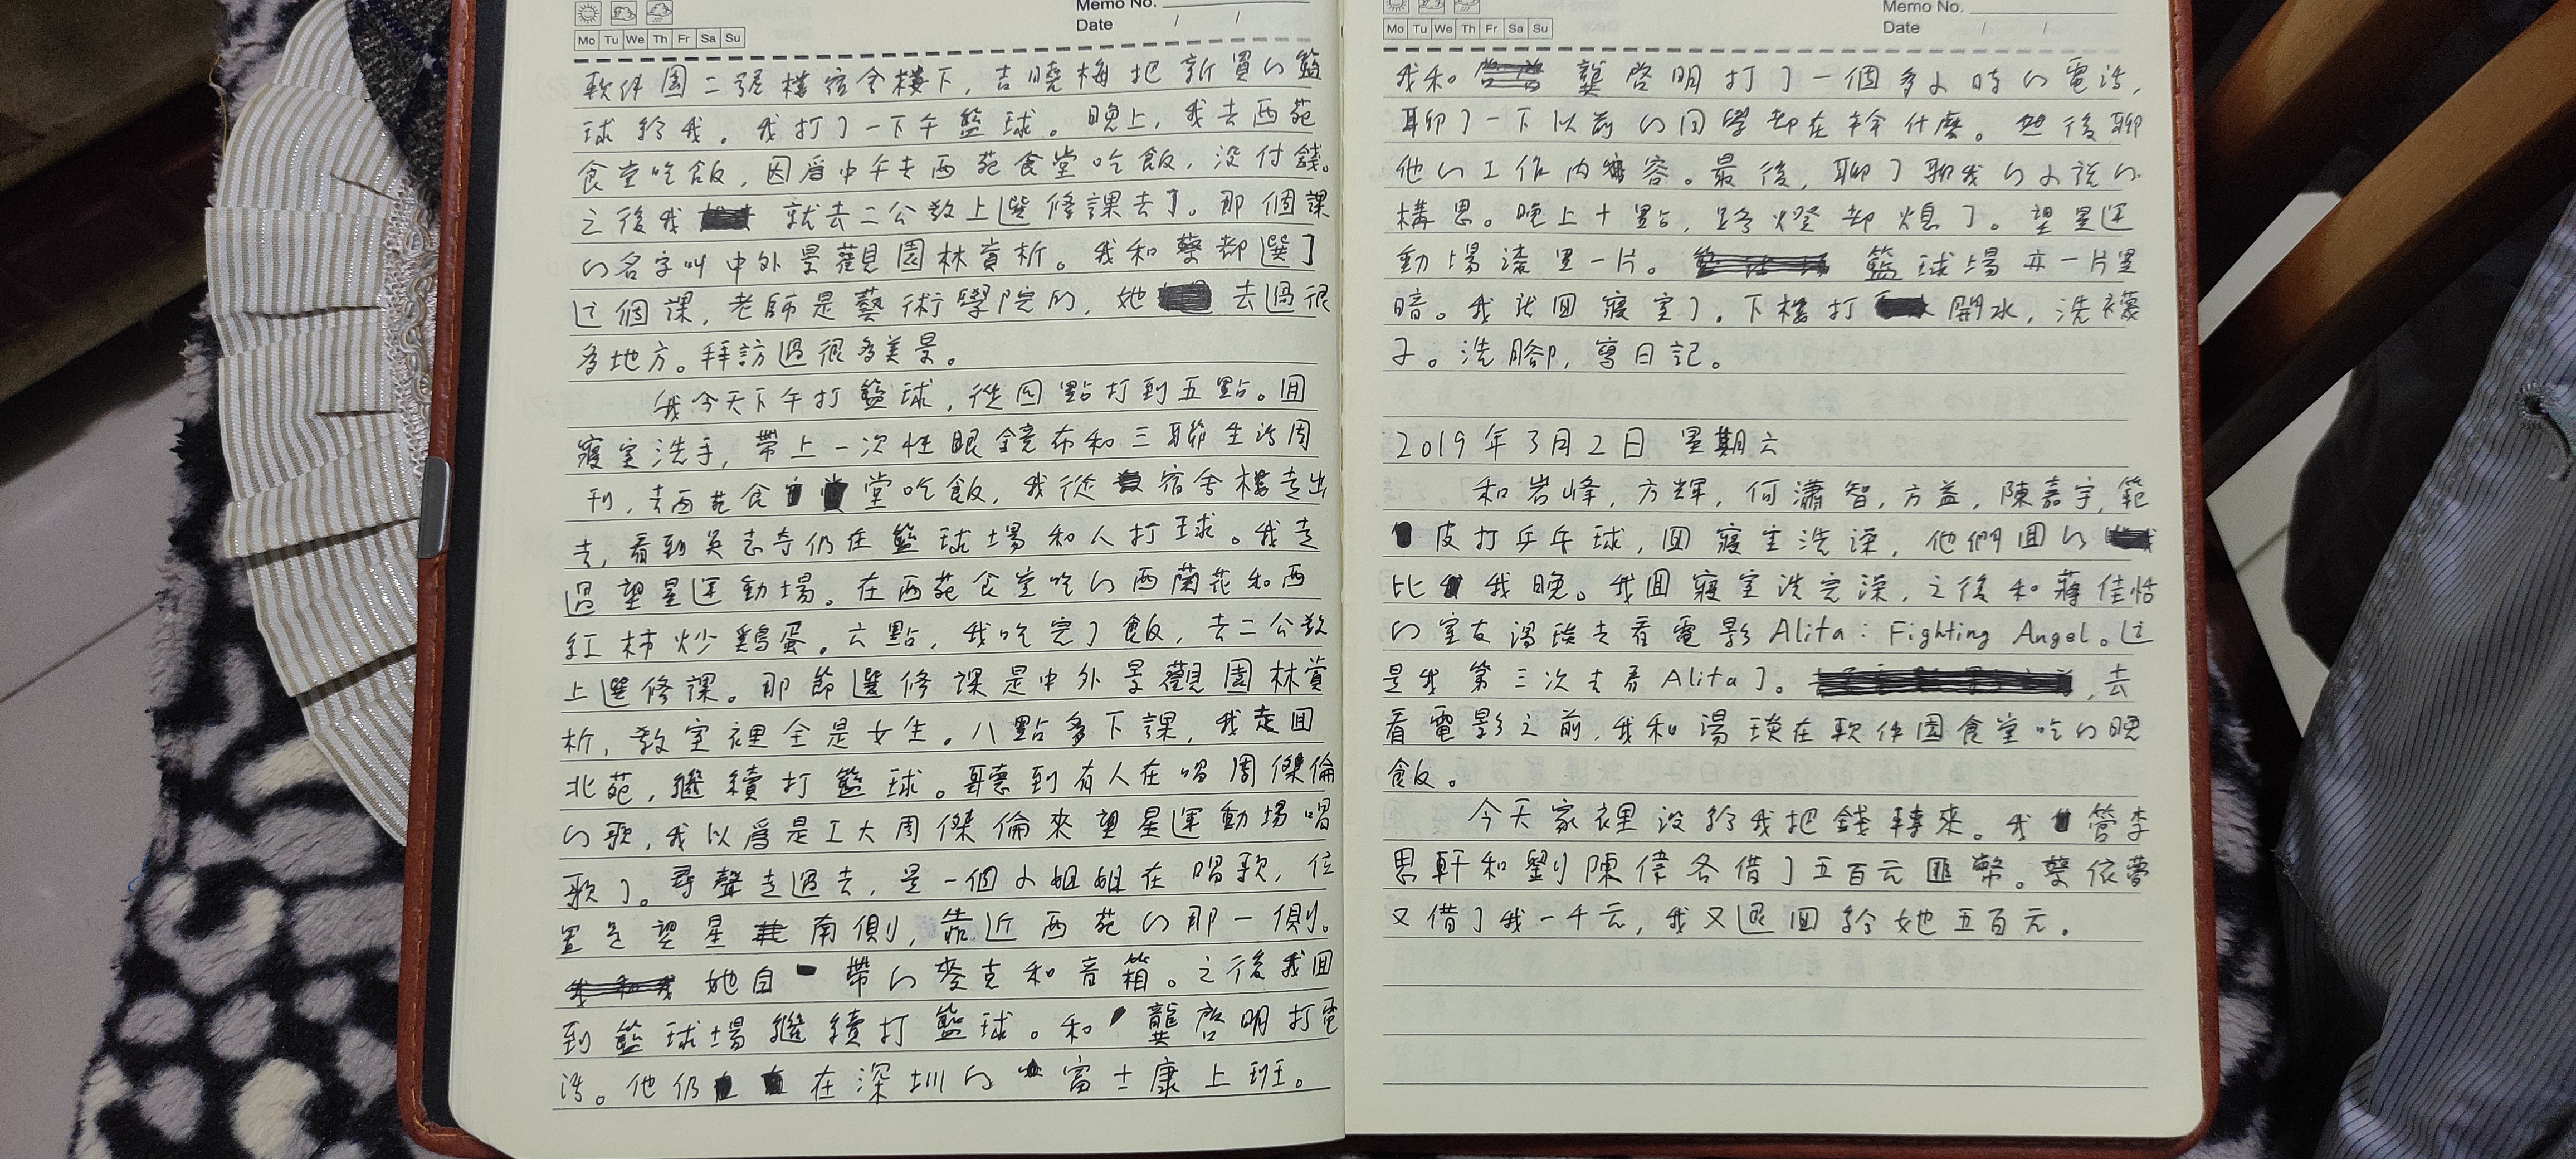 Memo No.
Date / /
Mo Tu We Th Fr Sa Su
軟件園二號樓宿舍樓下，吉曉梅把新買的籃
球給我。我打了一下午籃球。晚上，我去西苑
食堂吃飯，因爲中午去西苑食堂吃飯，沒付錢。
之後我 就去二公教上選修課去了。那個課
的名字叫中外景觀園林賞析。我和蔡都選了
这個課，老師是藝術學院的，她 去過很
多地方。拜訪過很多美景。
我今天下午打籃球，從四點打到五點。回
寢室洗手，帶上一次性眼鏡布和三聯生活周
刊，去西苑食 堂吃飯，我從 宿舍樓走出
去，看到吳志奇仍在籃球場和人打球。我走
過望星运動場。在西苑食堂吃的西蘭花和西
紅柿炒鷄蛋。六點，我吃完了飯，去二公教
上選修課。那節選修課是中外景觀園林賞
析，教室裡全是女生。八點多下課，我走回
北苑，繼續打籃球。聽到有人在唱周傑倫
的歌，我以爲是工大周傑倫來望星運動場唱
歌了。尋聲走過去，是一個小姐姐在唱歌，位
置是望星 南側，靠近西苑的那一側。
她自 帶的麥克和音箱。之後我回
到籃球場繼續打籃球。和 龔啓明打電
話。他仍 在深圳的 富士康上班。
Memo No.
Date / /
Mo Tu We Th Fr Sa Su
我和 龔啓明打了一個多小時的電話，
聊了一下以前的同學都在幹什麼。然後聊
他的工作内 容。最後，聊了聊我的小説的
構思。晚上十點，路燈都熄了。望星运
動場漆黑一片。 籃球場亦一片黑
暗。我就回寢室了。下樓打 開水，洗襪
子。洗脚，寫日記。
2019年3月2日 星期六
和岩峰，方輝，何瀟智，方益，陳嘉宇，範
皮打乒乓球，回寢室洗澡，他們回的
比 我晚。我回寢室洗完澡，之後和蔣佳恬
的室友湯琰去看電影Alita：Fighting Angel。这
是我第三次去看Alita了。 ，去
看電影之前，我和湯琰在軟件園食堂吃的晚
飯。
今天家裡沒給我把錢轉來。我 管李
思軒和劉陳偉各借了五百元匯幣。蔡依夢
又借了我一千元，我又退回給她五百元。